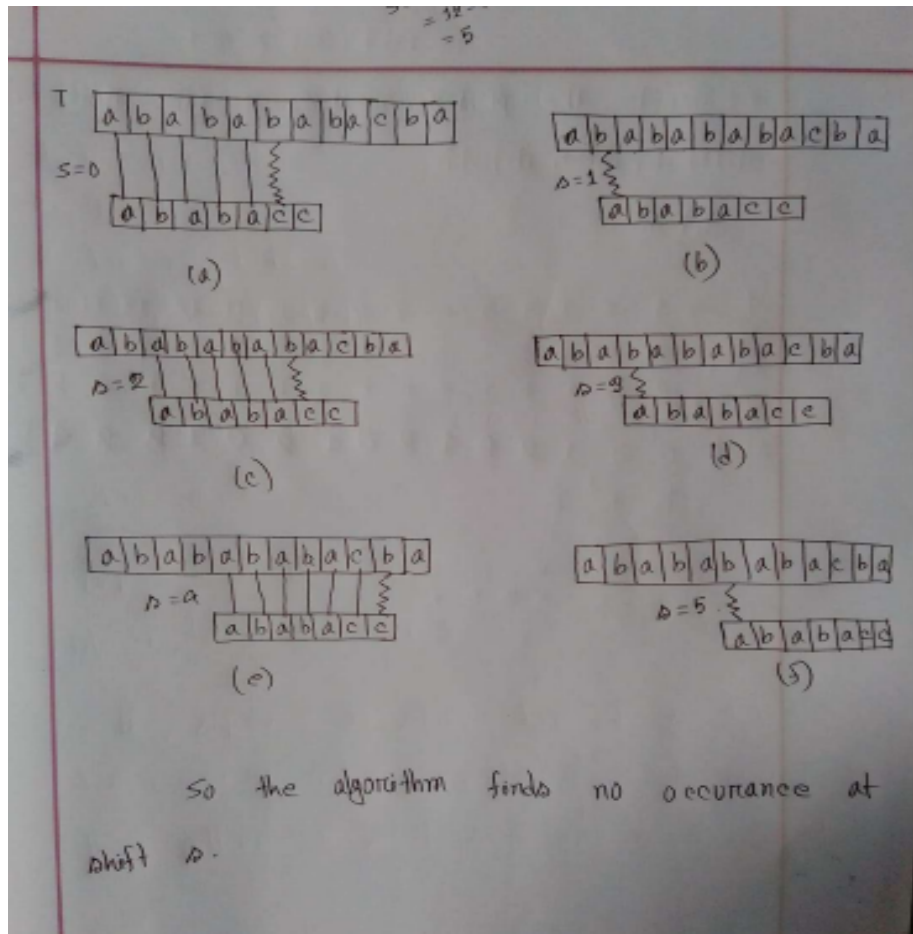 = 12
= 5
T a b a b a b a b a c b a
S=0
a b a b a c c
(a)
a b a b a b a b a c b a
s=1
a b a b a c c
(b)
a b a b a b a b a c b a
s=2
a b a b a c c
(c)
a b a b a b a b a c b a
s=3
a b a b a c c
(d)
a b a b a b a b a c b a
s=4
a b a b a c c
(e)
a b a b a b a b a c b a
s=5
a b a b a c c
(f)
So the algorithm finds no occurrance at
shift s.